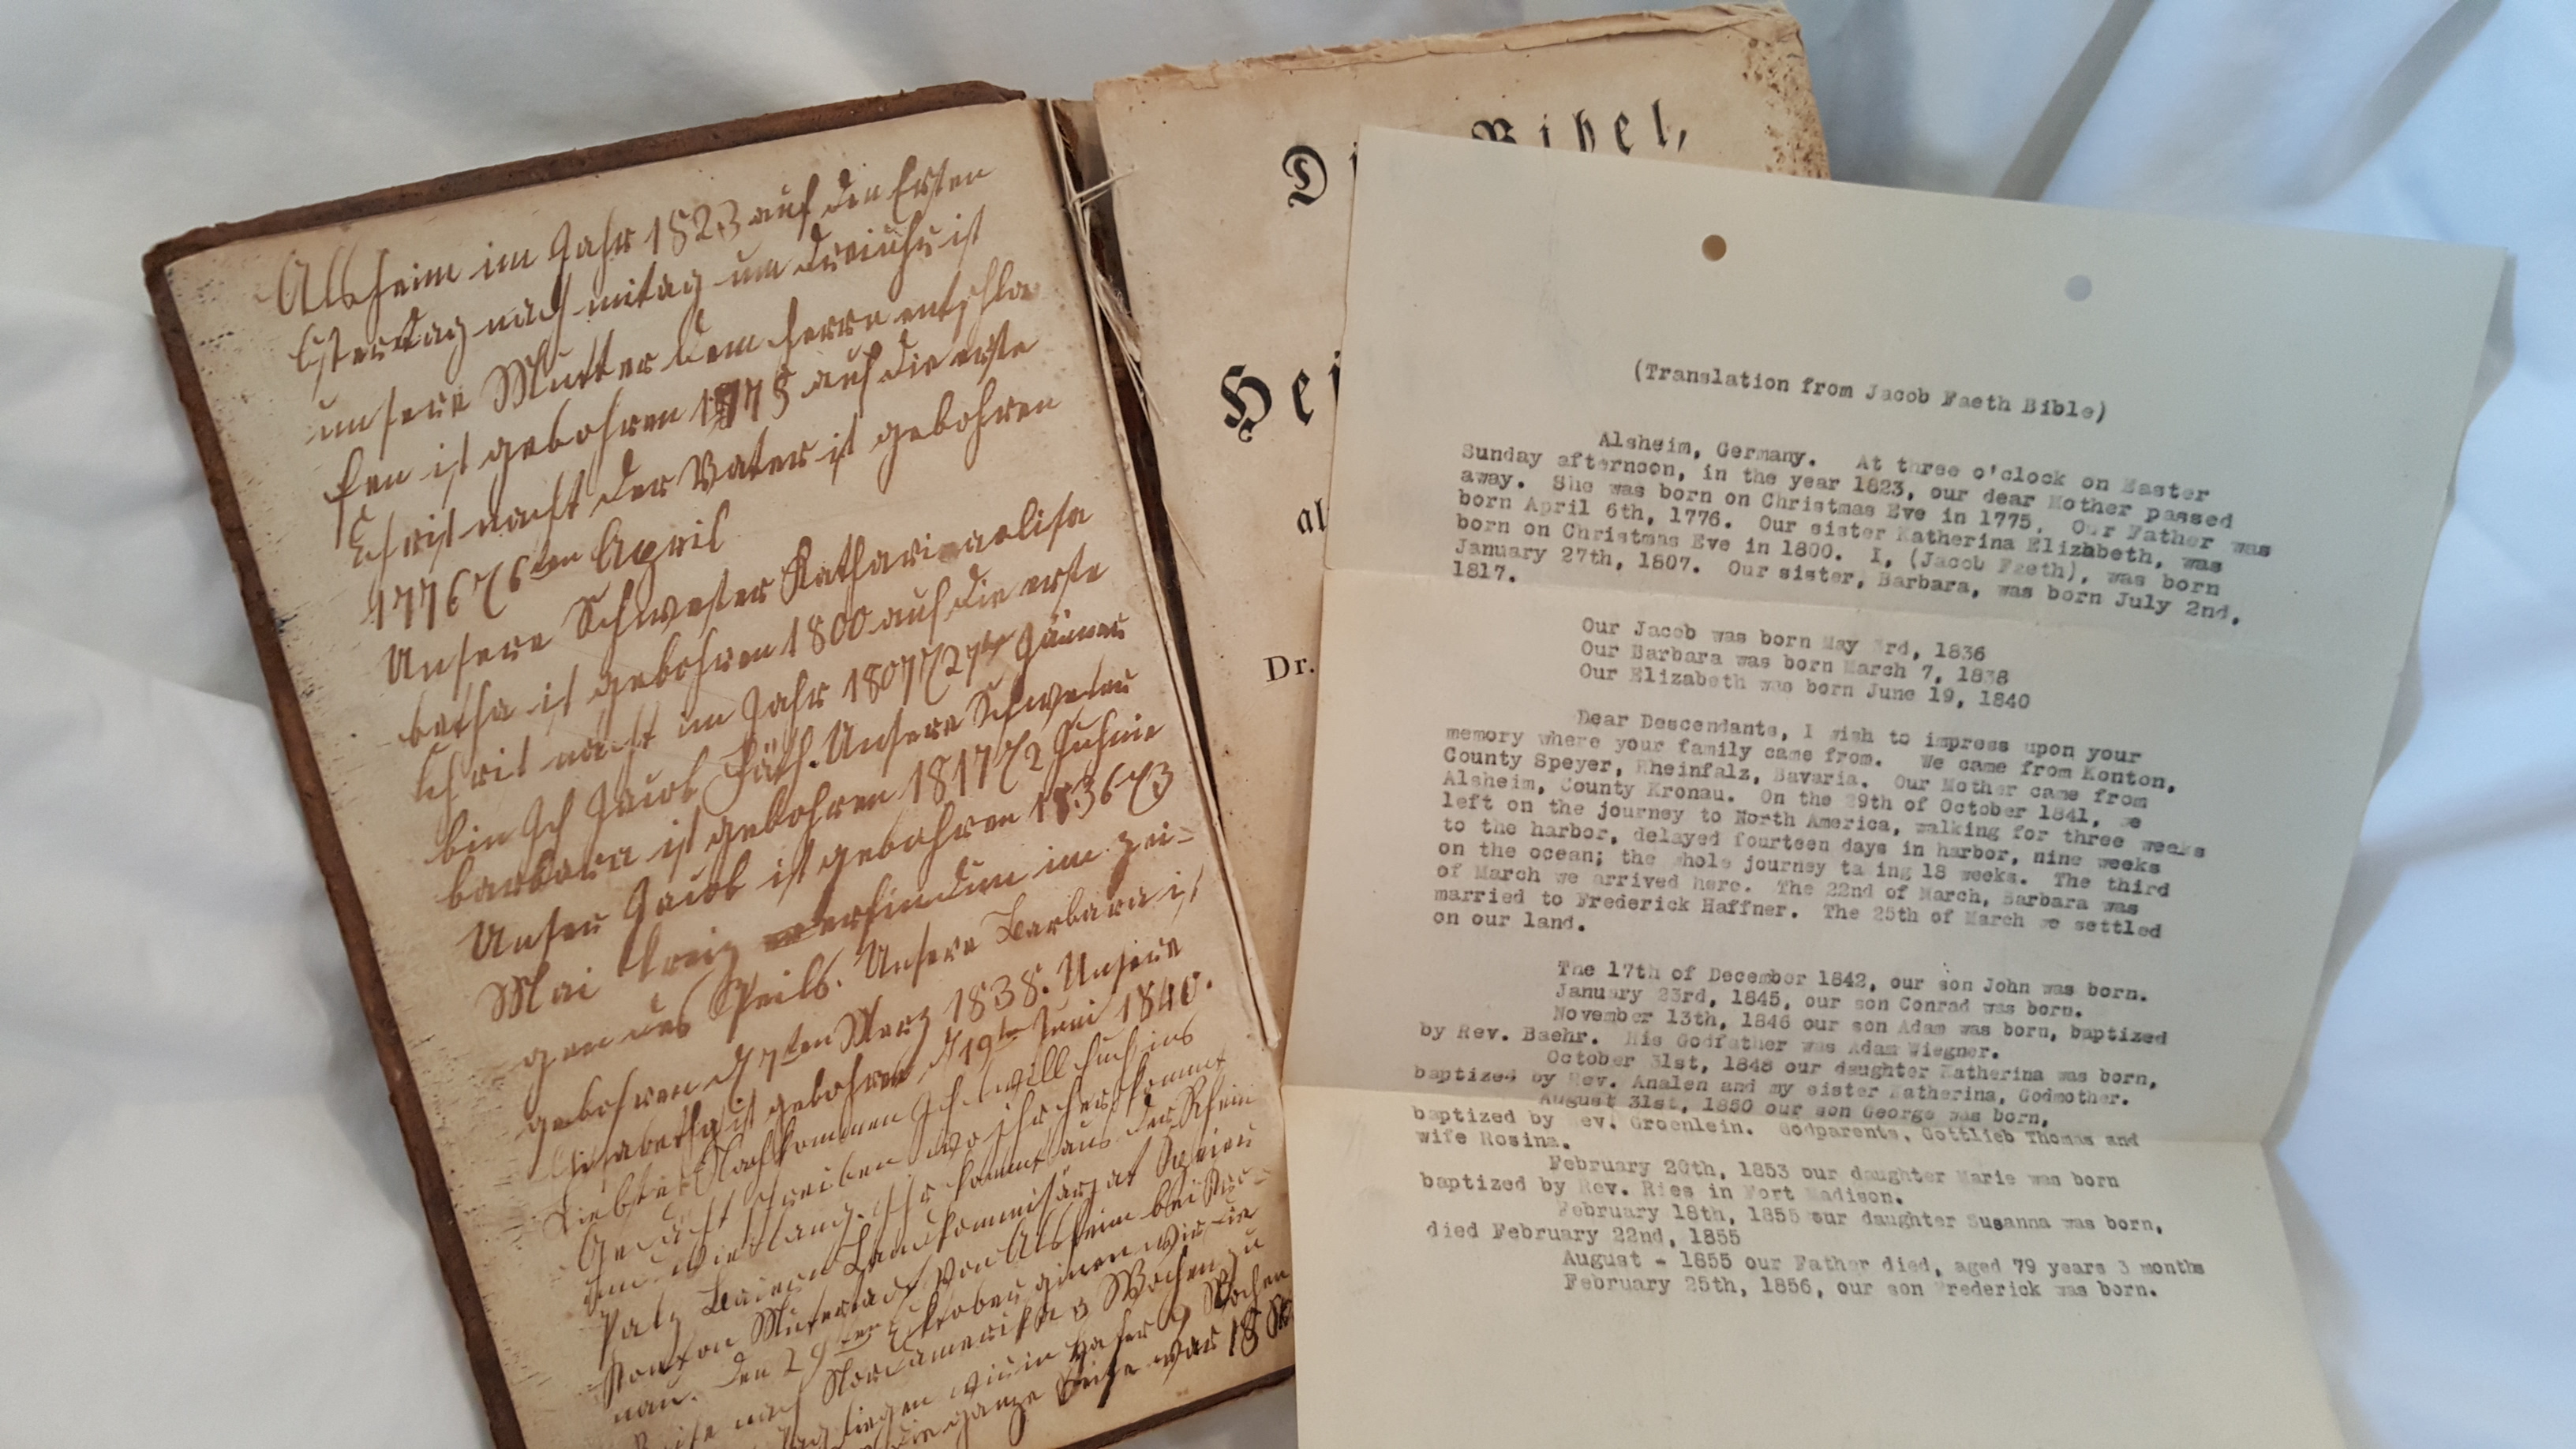 Alsheim im Jahr 1823 auf den Ersten
Ostertag nach mitag um dreiuhr ist
unsere Mutter dem Herrn entschla
fen ist gebohren 1775 auf die erste
Christnacht der Vater ist gebohren
1776 6ten April
Unsere Schwester Katharinaelisa
betha ist gebohren 1800 auf die erste
Christnacht im Jahr 1807 27ten Jänner
bin Ich Jacob Fäth. Unsere Schwester
barbara ist gebohren 1817 2 Juhnie
Unser Jacob ist gebohren 1836 3
Mai im Zei-
gen des Unsere Barbara ist
gebohren d 7ten Merz 1838. Unsere
Elisabetha ist gebohren d 19te Juni 1840.
Liebste Nachkommen Ich will Euch ins
Gedächt schreiben wo ihr her kommt
Ihr kommt aus der Rhein
Palz Baiern Landkommisariat Speier
Konton Muterstadt von Alsheim bei Kro-
nau. Den 29ten Oktober gingen wir die
Reise nach Nordamerika 3 Wochen zu
liegen wir in Hafer 9 Wochen
die ganze Reise war 18
Die Bibel,
Hei
al
Dr.
(Translation from Jacob Faeth Bible)
Alsheim, Germany. At three o'clock on Easter
Sunday afternoon, in the year 1823, our dear Mother passed
away. She was born on Christmas Eve in 1775. Our Father was
born April 6th, 1776. Our sister Katherina Elizabeth, was
born on Christmas Eve in 1800. I, (Jacob Faeth), was born
January 27th, 1807. Our sister, Barbara, was born July 2nd,
1817.
Our Jacob was born May 3rd, 1836
Our Barbara was born March 7, 1838
Our Elizabeth was born June 19, 1840
Dear Descendants, I wish to impress upon your
memory where your family came from. We came from Konton,
County Speyer, Rheinfalz, Bavaria. Our Mother came from
Alsheim, County Kronau. On the 29th of October 1841, we
left on the journey to North America, walking for three weeks
to the harbor, delayed fourteen days in harbor, nine weeks
on the ocean; the whole journey taking 18 weeks. The third
of March we arrived here. The 22nd of March, Barbara was
married to Frederick Haffner. The 25th of March we settled
on our land.
The 17th of December 1842, our son John was born.
January 23rd, 1845, our son Conrad was born.
November 13th, 1846 our son Adam was born, baptized
by Rev. Baehr. His Godfather was Adam Wiegner.
October 31st, 1848 our daughter Katherina was born,
baptized by Rev. Analen and my sister Katherina, Godmother.
August 31st, 1850 our son George was born,
baptized by Rev. Groenlein. Godparents, Gottlieb Thomas and
wife Rosina.
February 20th, 1853 our daughter Marie was born
baptized by Rev. Ries in Fort Madison.
February 18th, 1855 our daughter Susanna was born,
died February 22nd, 1855
August - 1855 our Father died, aged 79 years 3 months
February 25th, 1856, our son Frederick was born.